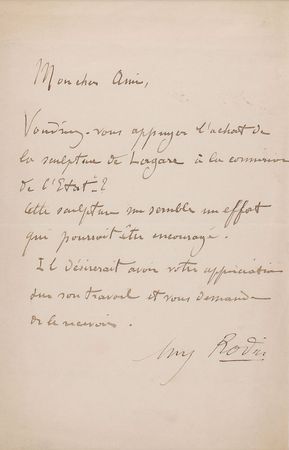 Mon cher Ami,
Voudriez-vous appuyer l'achat de
la sculpture de Lagare à la commission
de l'Etat ?
Cette sculpture me semble un effort
qui pourrait être encouragé.
Il désirerait avoir votre appréciation
sur son travail et vous demande
de le recevoir.
Aug Rodin